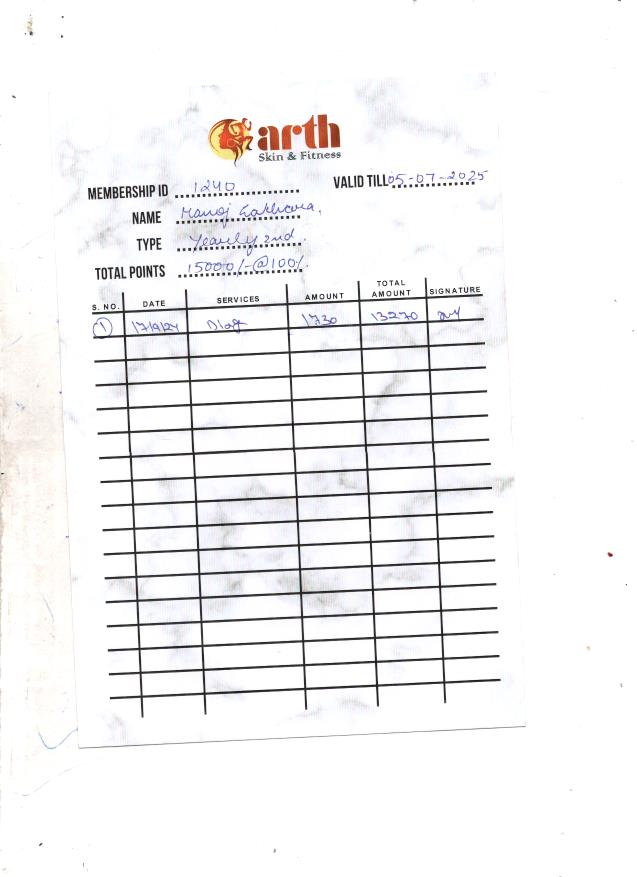 arth
Skin & Fitness
MEMBERSHIP ID 1240 VALID TILL 05-07-2025
NAME Manoj
TYPE Yearly 2nd.
TOTAL POINTS 15000/-@100%.
S. NO. DATE SERVICES AMOUNT TOTAL AMOUNT SIGNATURE
1 17/9/24 1730 13270